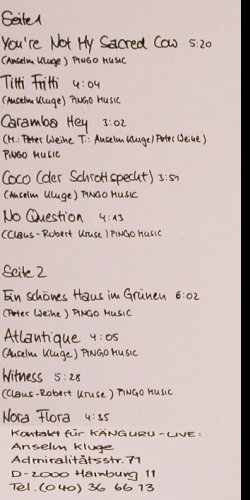 Seite 1
You're Not My Sacred Cow 5:20
(Anselm Kluge) PINGO MUSIC
Titti Fritti 4:04
(Anselm Kluge) PINGO MUSIC
Caramba Hey 3:02
(M.: Peter Weihe T.: Anselm Kluge/Peter Weihe)
PINGO MUSIC
Coco (der Schrottspecht) 3:57
(Anselm Kluge) PINGO MUSIC
No Question 4:13
(Claus-Robert Kruse) PINGO MUSIC
Seite 2
Ein schönes Haus im Grünen 6:02
(Peter Weihe) PINGO MUSIC
Atlantique 4:05
(Anselm Kluge) PINGO MUSIC
Witness 5:28
(Claus-Robert Kruse) PINGO MUSIC
Nora Flora 4:35
Kontakt für KÄNGURU-LIVE:
Anselm Kluge
Admiralitätsstr. 71
D-2000 Hamburg 11
Tel. (040) 36 66 13